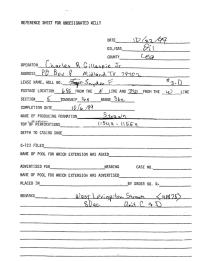 REFERENCE SHEET FOR UNDESIGNATED WELLS
DATE 10/22/99
OIL/GAS Oil
COUNTY Lea
OPERATOR Charles B. Gillespie Jr
ADDRESS PO Box 8 Midland TX 79702
LEASE NAME, WELL NO. Snyder F #3-D
FOOTAGE LOCATION FROM THE N LINE AND FROM THE W LINE
SECTION 6 TOWNSHIP RANGE 36e
COMPLETION DATE 10/6/99
NAME OF PRODUCING FORMATION Strawn
TOP OF PERFORATIONS
DEPTH TO CASING SHOE
C-123 FILED
NAME OF POOL FOR WHICH EXTENSION WAS ASKED
ADVERTISED FOR HEARING CASE NO.
NAME OF POOL FOR WHICH EXTENSION WAS ADVERTISED
PLACED IN BY ORDER NO. R-
REMARKS West Lovington Strawn